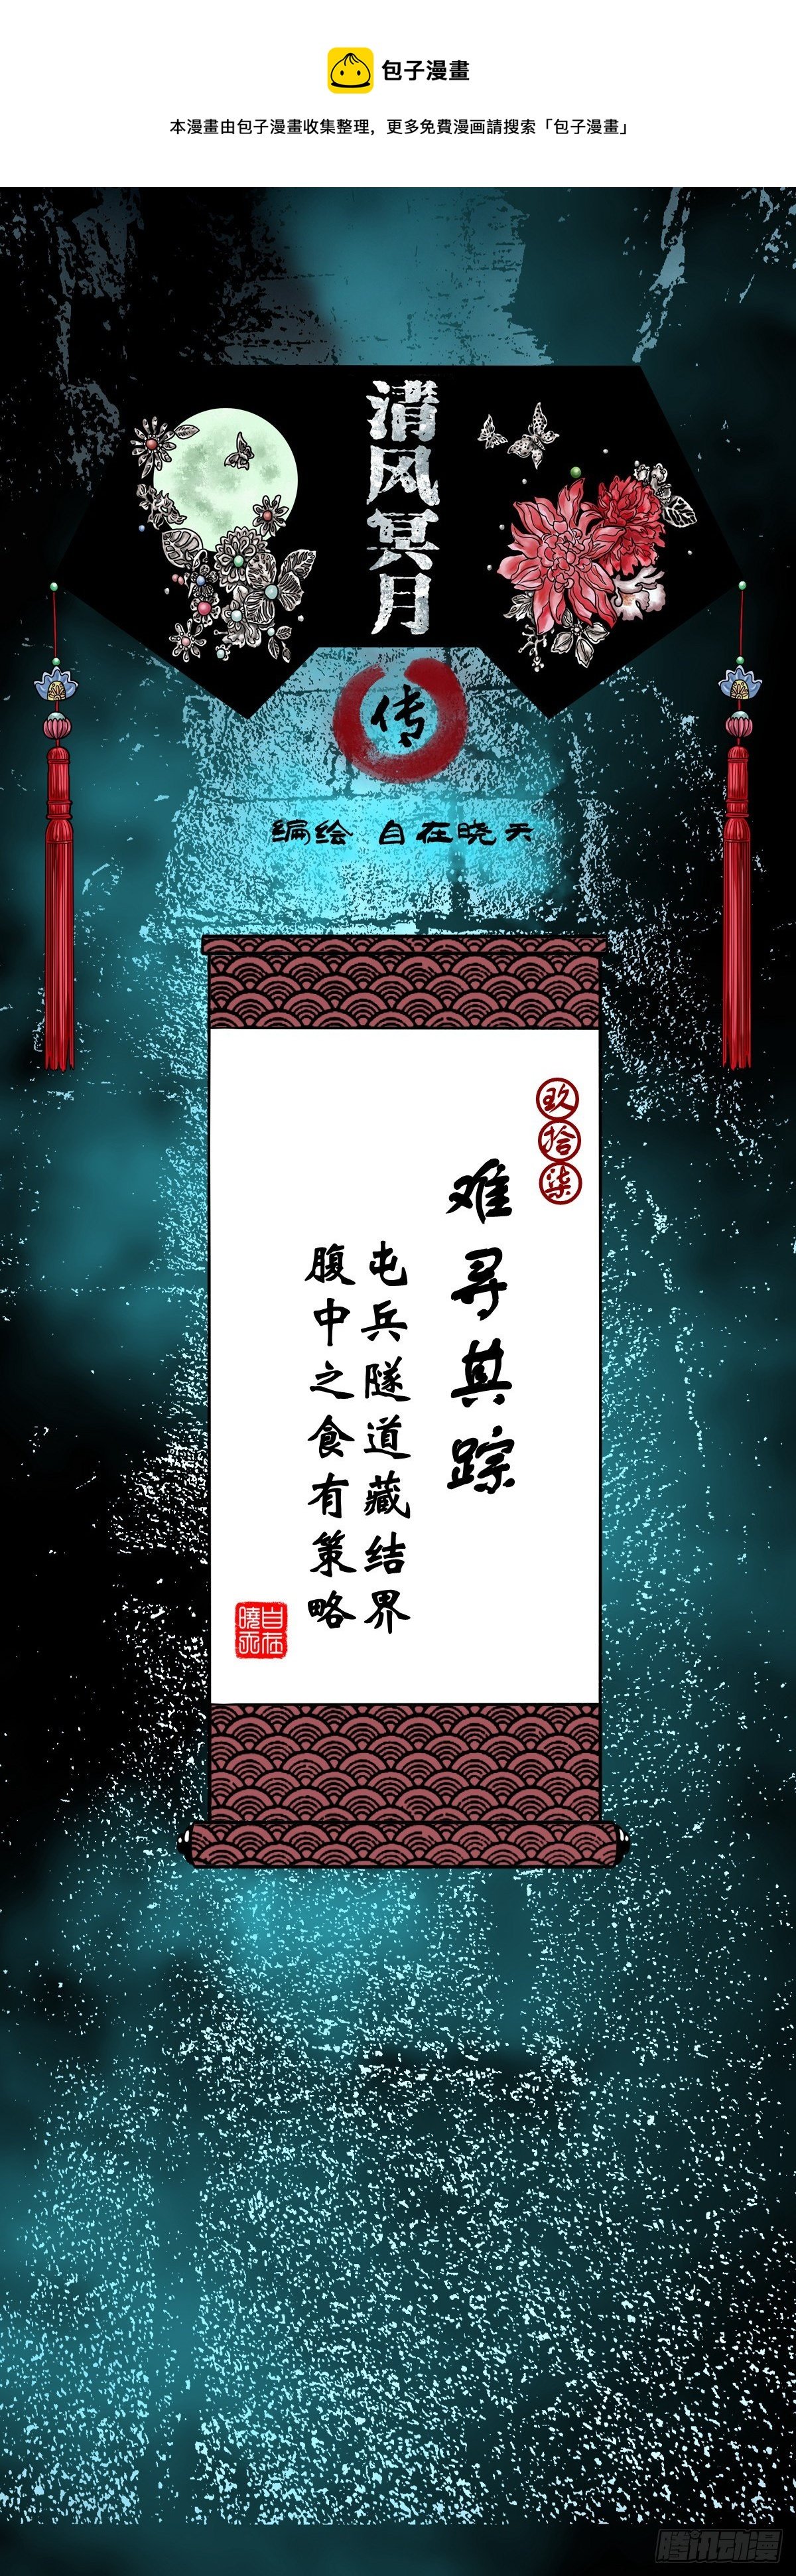 包子漫畫
本漫畫由包子漫畫收集整理，更多免費漫画請搜索「包子漫畫」
清风冥月
传
编绘 自在晓天
玖拾柒
难寻其踪
屯兵隧道藏结界
腹中之食有策略
自在
曉天
腾讯动漫